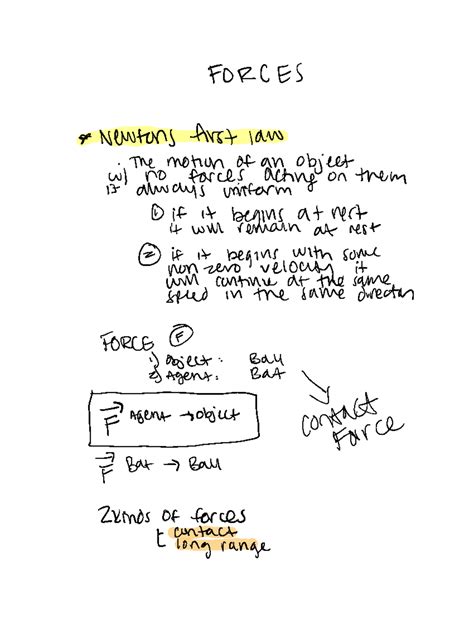 FORCES
* Newtons first law
: The motion of an object
w/ no forces acting on them
is always uniform
① if it begins at rest
it will remain at rest
② if it begins with some
non zero velocity it
will continue at the same
speed in the same direction
FORCE Ⓕ
1) Object: Ball
2) Agent: Bat
F⃗ Agent → Object
contact
Force
F⃗ Bat → Ball
2 kinds of forces
contact
long range